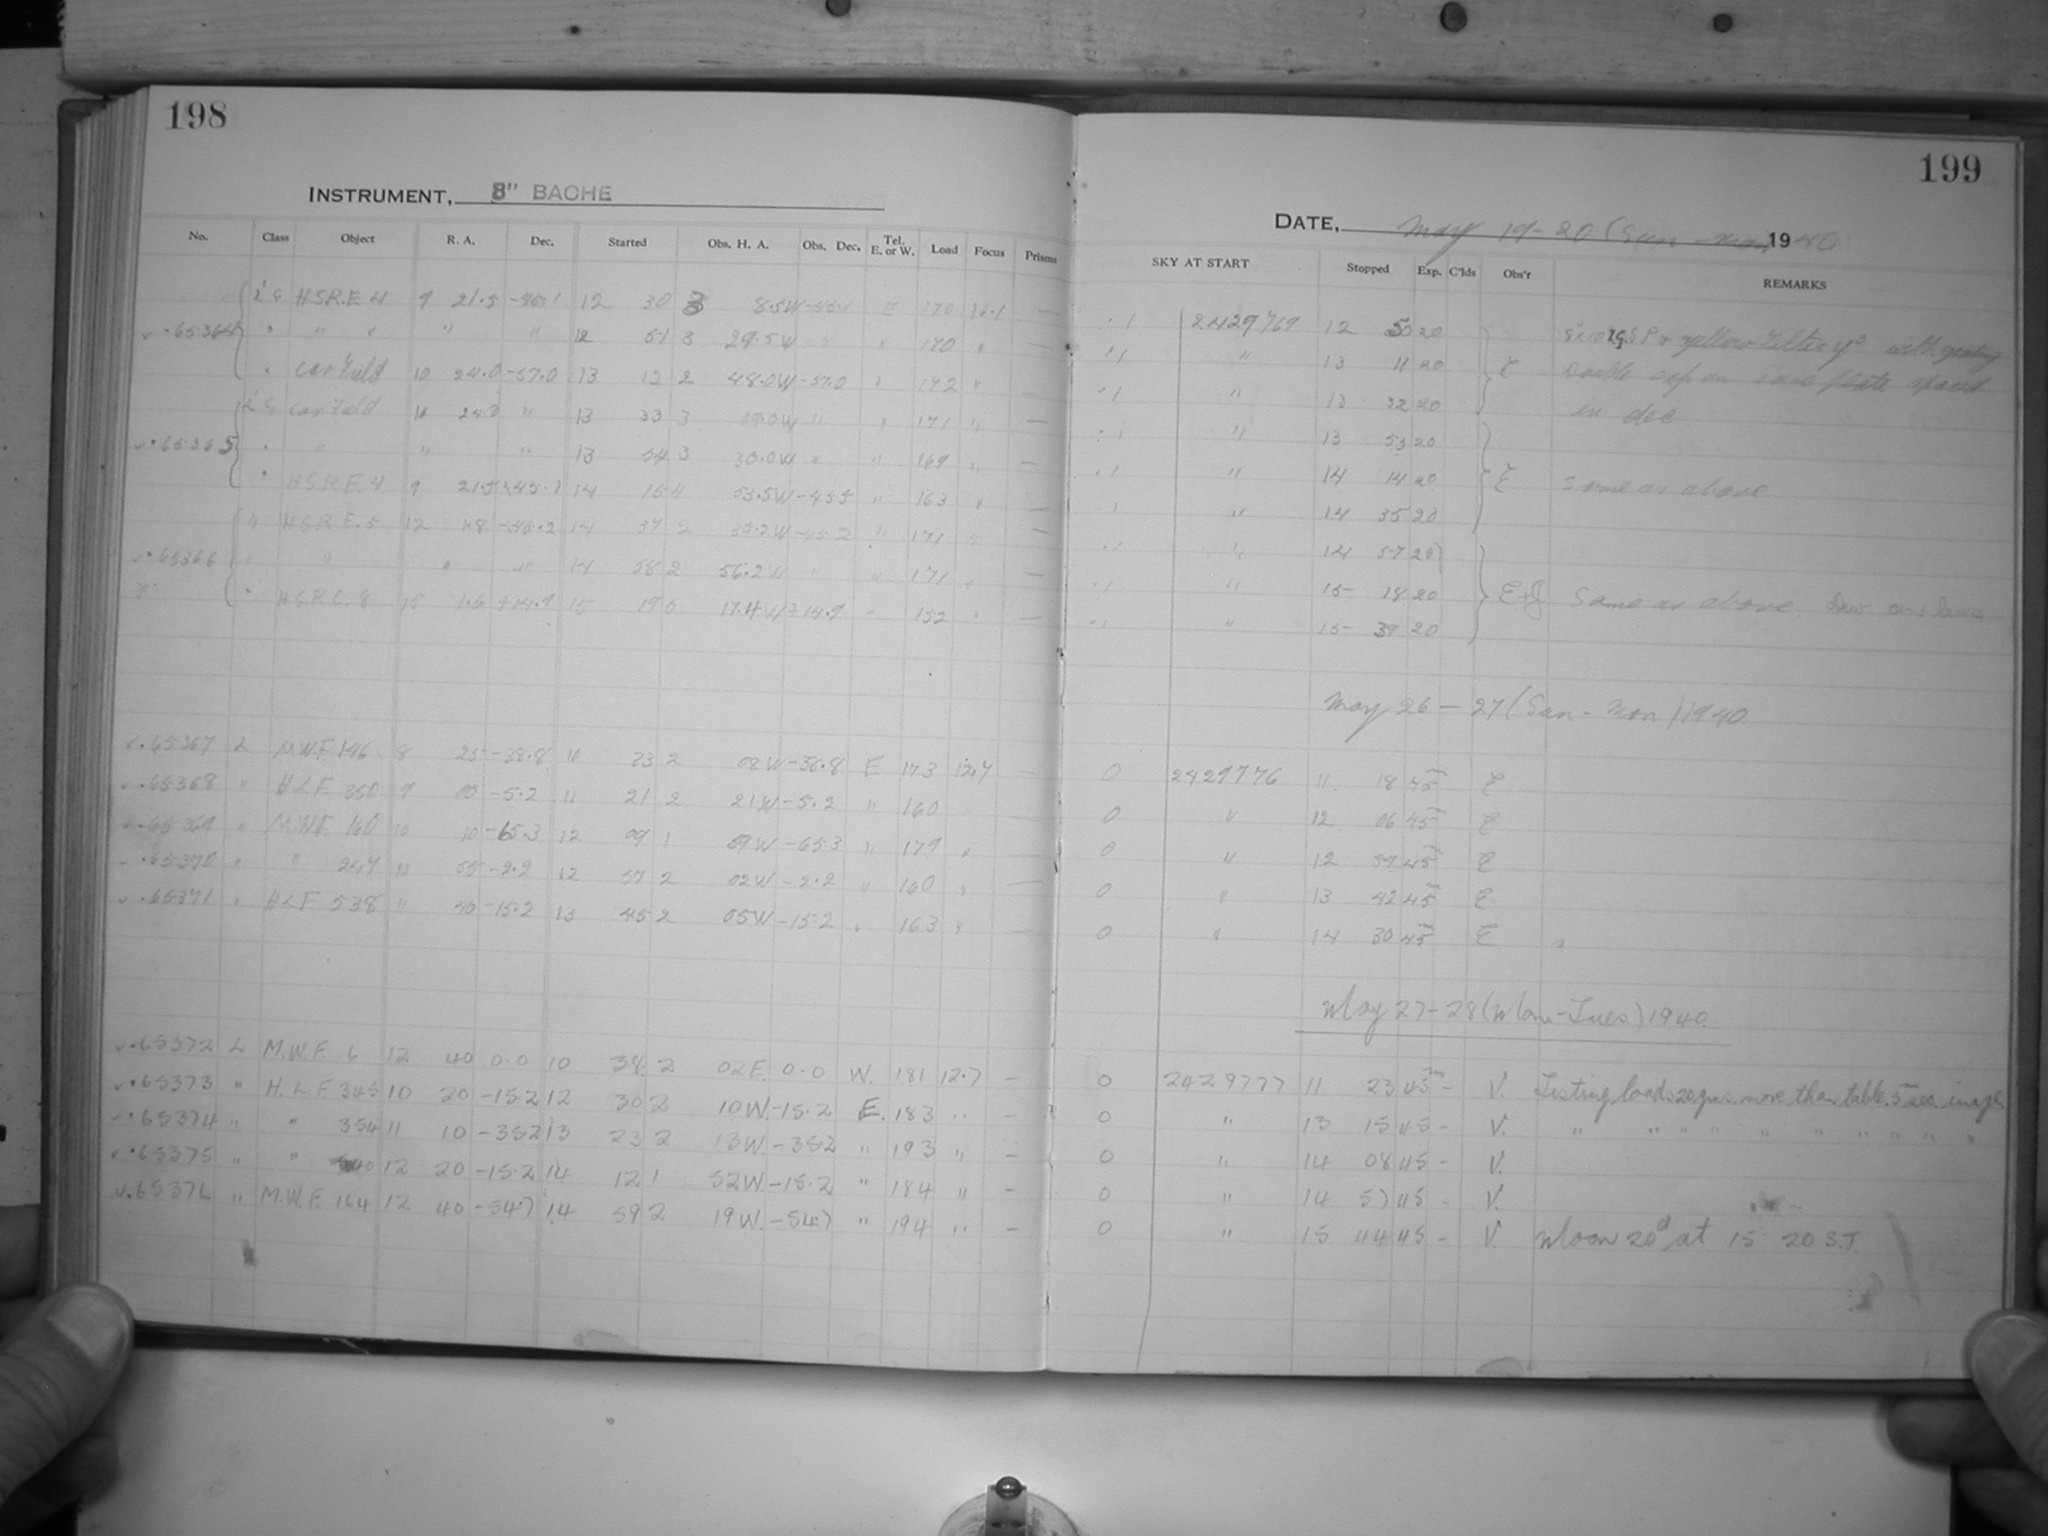 198
INSTRUMENT, 8" BACHE
No. Class Object R. A. Dec. Started Obs. H. A. Obs. Dec. Tel. E. or W. Load Focus Prisms
H.S.R.E. 4 9 21.5 -45.1 12 30 8.5W -45.1 170 —
65364 " " " " 12 51 3 29.5W " " 170 " —
Car Field 10 24.0 -57.0 13 12 2 48.0W -57.0 " 172 " —
Car Field 10 " 13 33 3 " " 171 " —
65365 " " " 13 54 3 30.0W " " 169 " —
H.S.R.E. 4 9 21.5 -45.1 14 15 4 53.5W -45.5 " 163 " —
H.S.R.E. 5 12 1.8 -45.2 14 37 2 35.2W -45.2 " 171 " —
65366 " " " " 14 58 2 56.2W " " 171 " —
H.S.R.C. 8 15 1.6 +14.9 15 19 0 17.4W +14.9 " 152 " —
65367 L M.W.F. 146 8 25 -38.8 10 33 2 08W -38.8 E 173 12.7 —
65368 " H.L.F. 350 9 -5.2 11 21 2 21W -5.2 " 160
65369 " M.W.F. 160 10 10 -65.3 12 09 1 59W -65.3 " 179 " —
65370 " " 247 " 55 -2.2 12 57 2 02W -2.2 " 160 " —
65371 " H.L.F. 538 " 40 -15.2 13 45 2 05W -15.2 " 163 " —
65372 L M.W.F. 6 12 40 0.0 10 38 2 02E. 0.0 W. 181 12.7 —
65373 " H.L.F. 345 10 20 -15.2 12 30 2 10W. -15.2 E. 183 " —
65374 " " 354 11 10 -35.2 13 23 2 13W. -35.2 " 193 " —
65375 " " 12 20 -15.2 14 12 1 52W. -15.2 " 184 " —
65376 " M.W.F. 164 12 40 -54.7 14 59 2 19W. -54.7 " 194 " —
199
DATE, May 19-20 (Sun - Mon) 1940
SKY AT START Stopped Exp. C'lds Obs'r REMARKS
2429769 12 50 20 yellow filter with grating
" 13 11 20 E Double exp on same plate spaced
" 13 32 20 in dec
" 13 53 20
" 14 14 20 E Same as above
" 14 35 20
" 14 57 20
" 15 18 20 E+J Same as above. Dew on lens
" 15 39 20
May 26 — 27 (Sun - Mon) 1940
0 2429776 11 18 45 E
0 " 12 06 45 E
0 " 12 54 45 E
0 " 13 42 45 E
0 " 14 30 45 E
May 27-28 (Mon.-Tues.) 1940.
0 2429777 11 23 45 - V. Testing loads 20 gms. more than table. 5 sec. image
0 " 13 15 45 - V. " " " " " " " " " "
0 " 14 08 45 - V.
0 " 14 57 45 - V.
0 " 15 44 45 - V. Moon 20d at 15 20 S.T.